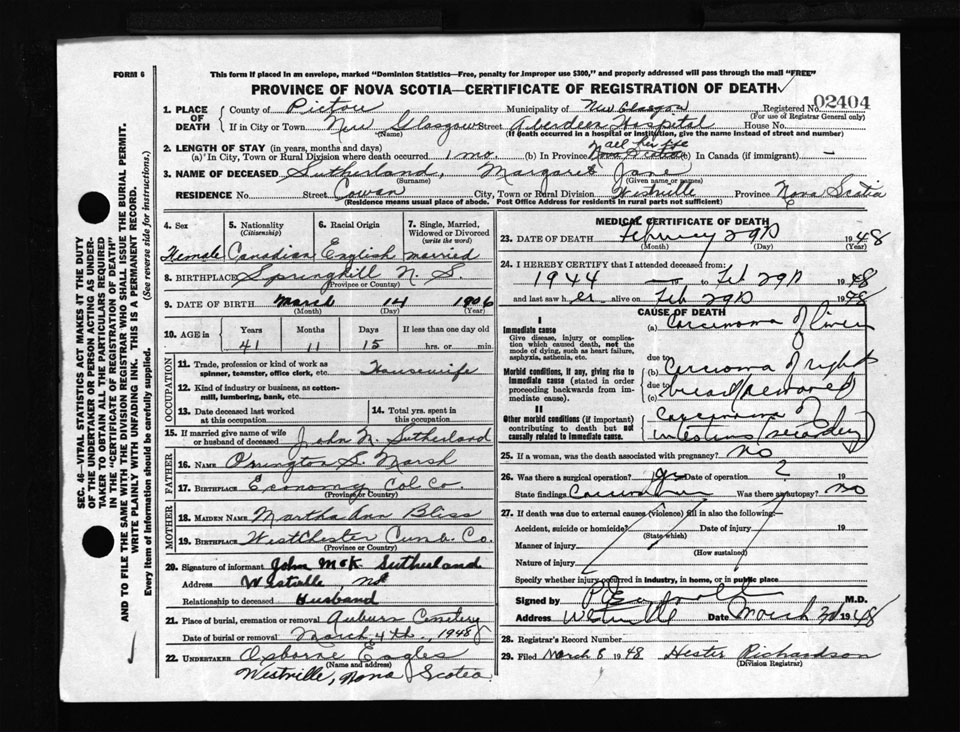 FORM 6
This form if placed in an envelope, marked "Dominion Statistics—Free, penalty for improper use $300," and properly addressed will pass through the mail "FREE"
PROVINCE OF NOVA SCOTIA—CERTIFICATE OF REGISTRATION OF DEATH
1. PLACE OF DEATH County of Pictou Municipality of New Glasgow Registered No. 02404
(For use of Registrar General only)
If in City or Town New Glasgow Street Aberdeen Hospital House No.
(Name) (If death occurred in a hospital or institution, give the name instead of street and number)
2. LENGTH OF STAY (in years, months and days)
all her life
(a) In City, Town or Rural Division where death occurred 1 mo. (b) In Province Nova Scotia (c) In Canada (if immigrant) —
3. NAME OF DECEASED Sutherland, Margaret Jane
(Surname) (Given name or names)
RESIDENCE No. Street Cowan City, Town or Rural Division Westville Province Nova Scotia
(Residence means usual place of abode. Post Office Address for residents in rural parts not sufficient)
4. Sex 5. Nationality (Citizenship) 6. Racial Origin 7. Single, Married, Widowed or Divorced (write the word)
Female Canadian English married
8. BIRTHPLACE Springhill N. S.
(Province or Country)
9. DATE OF BIRTH March 14 1906
(Month) (Day) (Year)
10. AGE in Years Months Days If less than one day old
41 11 15 hrs. or min.
OCCUPATION
11. Trade, profession or kind of work as spinner, teamster, office clerk, etc. Housewife
12. Kind of industry or business, as cotton-mill, lumbering, bank, etc.
13. Date deceased last worked at this occupation
14. Total yrs. spent in this occupation
15. If married give name of wife or husband of deceased John N. Sutherland
FATHER
16. NAME Orrington S. Marsh
17. BIRTHPLACE Economy Col. Co.
(Province or Country)
MOTHER
18. MAIDEN NAME Martha Ann Bliss
19. BIRTHPLACE Westchester Cumb. Co.
(Province or Country)
20. Signature of informant John McK Sutherland
Address Westville, NS
Relationship to deceased Husband
21. Place of burial, cremation or removal Auburn Cemetery
Date of burial or removal March 4th, 1948
22. UNDERTAKER Osborne Eagles
(Name and address)
Westville, Nova Scotia
MEDICAL CERTIFICATE OF DEATH
23. DATE OF DEATH February 29th 1948
(Month) (Day) (Year)
24. I HEREBY CERTIFY that I attended deceased from:
1944 to Feb 29th 1948
and last saw her alive on Feb 29th 1948
CAUSE OF DEATH
I
Immediate cause
Give disease, injury or complication which caused death, not the mode of dying, such as heart failure, asphyxia, asthenia, etc.
(a) Carcinoma of liver
due to
Morbid conditions, if any, giving rise to immediate cause (stated in order proceeding backwards from immediate cause).
(b) Carcinoma of right
due to
(c) breast (removed)
II
Other morbid conditions (if important) contributing to death but not causally related to immediate cause.
Carcinoma of
intestines (secondary)
25. If a woman, was the death associated with pregnancy? No
26. Was there a surgical operation? yes Date of operation ? 19
State findings Carcinoma Was there autopsy? No
27. If death was due to external causes (violence) fill in also the following:—
Accident, suicide or homicide? Date of injury 19
(State which)
Manner of injury
(How sustained)
Nature of injury
Specify whether injury occurred in industry, in home, or in public place
Signed by M.D.
Address Westville Date March 3rd 1948
28. Registrar's Record Number
29. Filed March 8 1948 Hester Richardson
(Division Registrar)
SEC. 46—VITAL STATISTICS ACT MAKES IT THE DUTY
OF THE UNDERTAKER OR PERSON ACTING AS UNDERTAKER TO OBTAIN ALL THE PARTICULARS REQUIRED
IN THE "CERTIFICATE OF REGISTRATION OF DEATH"
AND TO FILE THE SAME WITH THE DIVISION REGISTRAR WHO SHALL ISSUE THE BURIAL PERMIT.
WRITE PLAINLY WITH UNFADING INK. THIS IS A PERMANENT RECORD.
Every item of information should be carefully supplied. (See reverse side for instructions.)